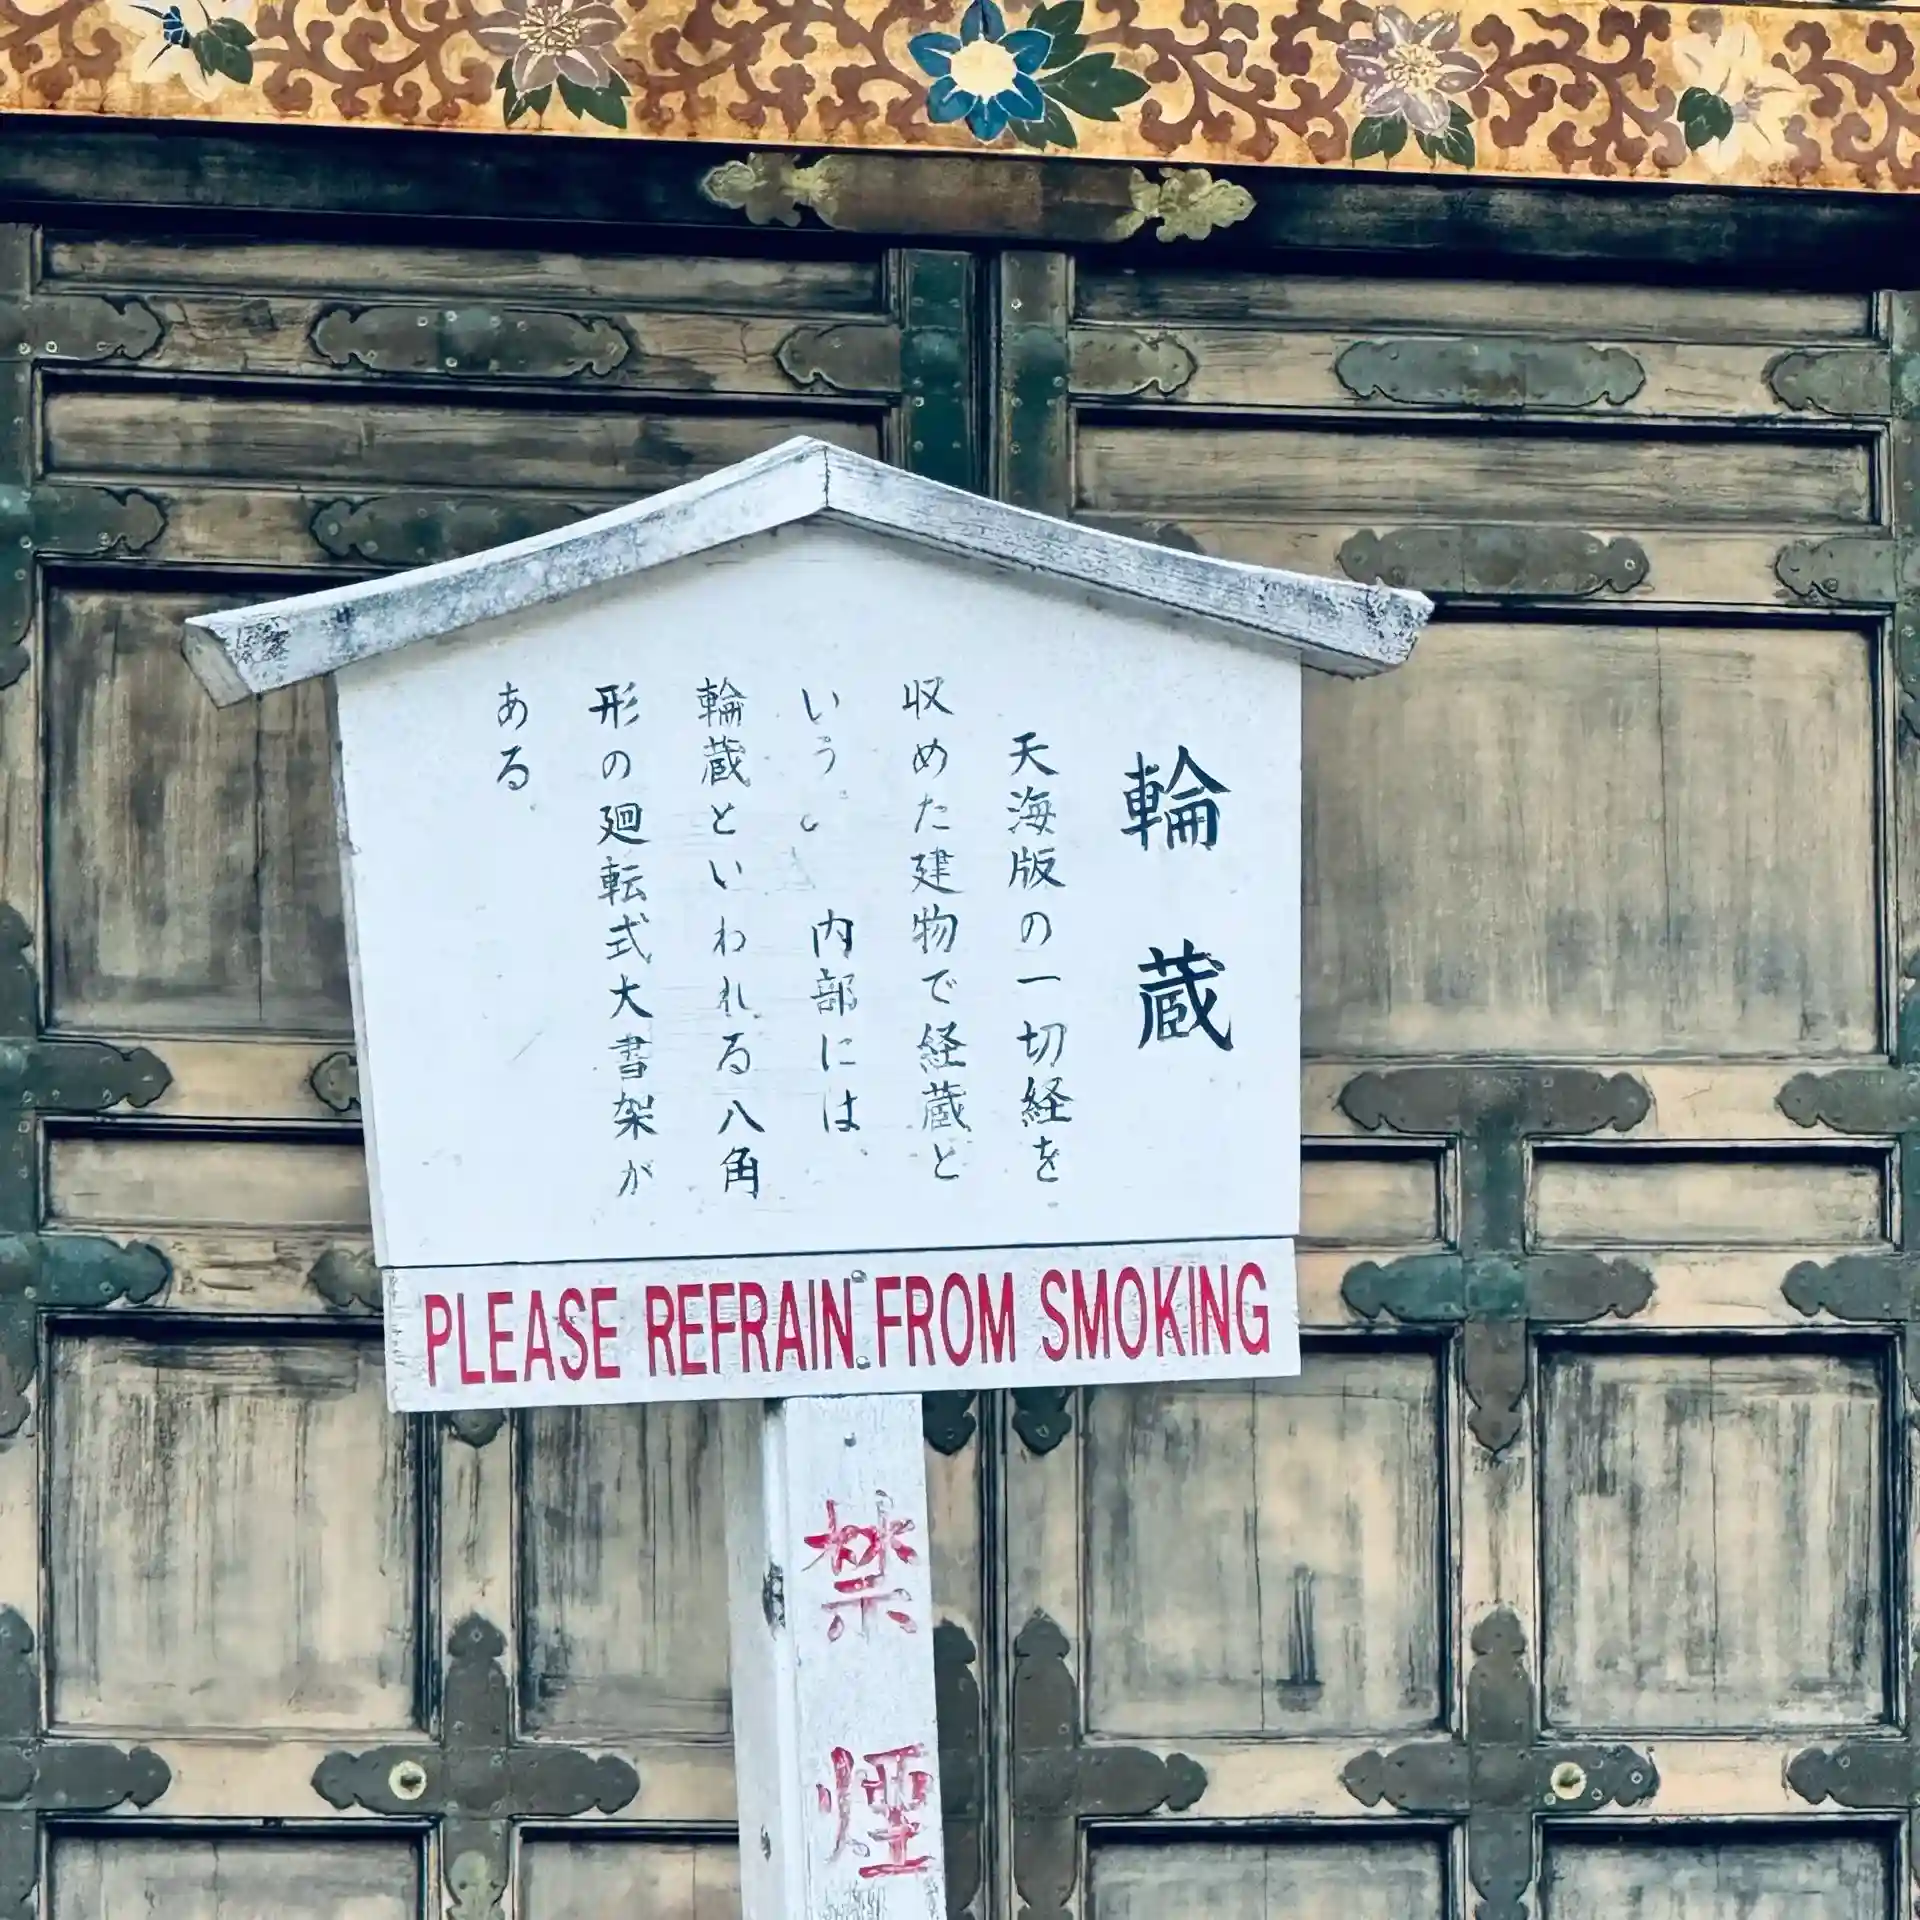 輪蔵
天海版の一切経を
収めた建物で経蔵と
いう。 内部には
輪蔵といわれる八角
形の廻転式大書架が
ある
PLEASE REFRAIN FROM SMOKING
禁煙